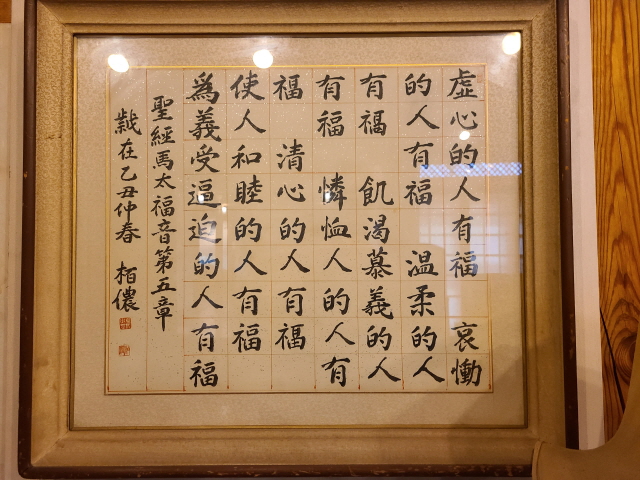 虛心的人有福 哀慟
的人有福 溫柔的人
有福 飢渴慕義的人
有福 憐恤人的人有
福 清心的人有福
使人和睦的人有福
爲義受逼迫的人有福
聖經馬太福音第五章
在乙丑仲春 栢儂